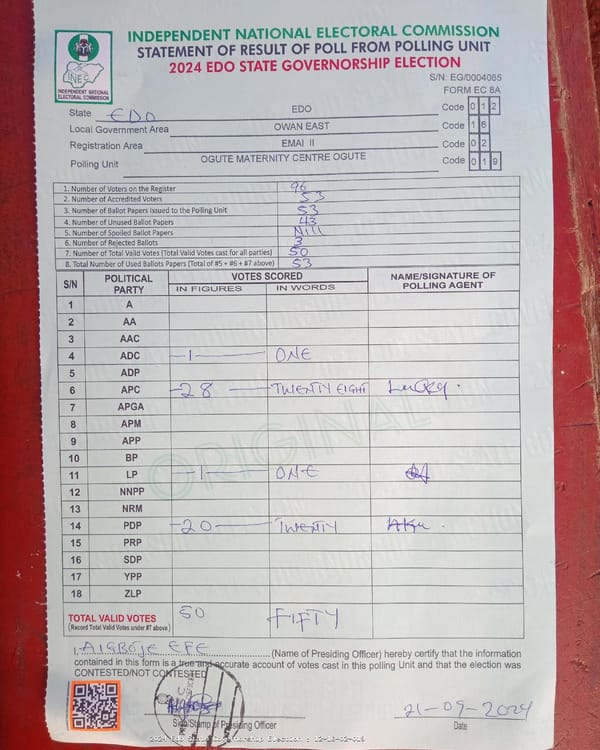 INDEPENDENT NATIONAL ELECTORAL COMMISSION
STATEMENT OF RESULT OF POLL FROM POLLING UNIT
2024 EDO STATE GOVERNORSHIP ELECTION
INEC
INDEPENDENT NATIONAL
ELECTORAL COMMISSION
S/N: EG/0004065
FORM EC 8A
State EDO EDO Code 0 1 2
Local Government Area OWAN EAST Code 1 6
Registration Area EMAI II Code 0 2
Polling Unit OGUTE MATERNITY CENTRE OGUTE Code 0 1 9
1. Number of Voters on the Register 96
2. Number of Accredited Voters 53
3. Number of Ballot Papers Issued to the Polling Unit 53
4. Number of Unused Ballot Papers 43
5. Number of Spoiled Ballot Papers Nill
6. Number of Rejected Ballots 3
7. Number of Total Valid Votes (Total Valid Votes cast for all parties) 50
8. Total Number of Used Ballots Papers (Total of #5 + #6 + #7 above) 53
S/N POLITICAL PARTY VOTES SCORED NAME/SIGNATURE OF POLLING AGENT
IN FIGURES IN WORDS
1 A
2 AA
3 AAC
4 ADC 1 ONE
5 ADP
6 APC 28 TWENTY EIGHT Lucky
7 APGA
8 APM
9 APP
10 BP
11 LP 1 ONE
12 NNPP
13 NRM
14 PDP 20 TWENTY
15 PRP
16 SDP
17 YPP
18 ZLP
ORIGINAL
TOTAL VALID VOTES 50 FIFTY
(Record Total Valid Votes under #7 above)
I, AIGBOJE EFE (Name of Presiding Officer) hereby certify that the information
contained in this form is a true and accurate account of votes cast in this polling Unit and that the election was
CONTESTED/NOT CONTESTED
Sign/Stamp of Presiding Officer
21-09-2024
Date
2024 Edo State Governorship Election : 12-16-02-019